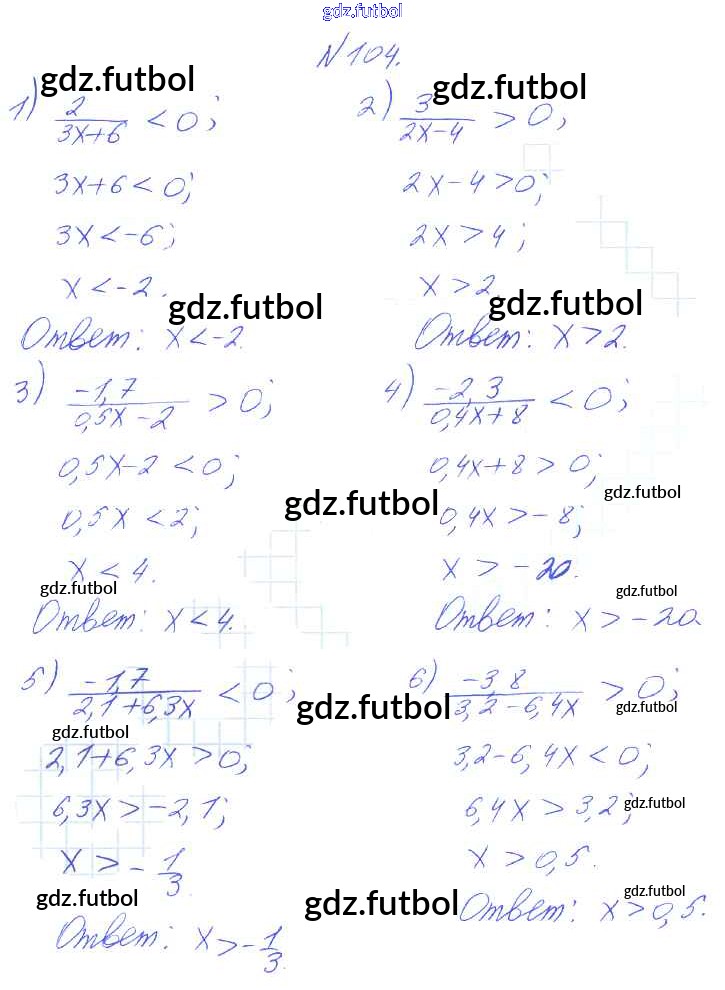 gdz.futbol
№104.
gdz.futbol gdz.futbol
1) 2/(3x+6) < 0; 2) 3/(2x-4) > 0;
3x+6 < 0; 2x-4 > 0;
3x < -6; 2x > 4;
x < -2. x > 2
gdz.futbol gdz.futbol
Ответ: x < -2. Ответ: x > 2.
3) -1,7/(0,5x-2) > 0; 4) -2,3/(0,4x+8) < 0;
0,5x-2 < 0; 0,4x+8 > 0;
gdz.futbol gdz.futbol
0,5x < 2; 0,4x > -8;
x < 4. x > -20.
gdz.futbol gdz.futbol
Ответ: x < 4. Ответ: x > -20.
5) -1,7/(2,1+6,3x) < 0; 6) -3,8/(3,2-6,4x) > 0;
gdz.futbol gdz.futbol
gdz.futbol
2,1+6,3x > 0; 3,2-6,4x < 0;
6,3x > -2,1; 6,4x > 3,2;
gdz.futbol
x > -1/3. x > 0,5.
gdz.futbol gdz.futbol gdz.futbol
Ответ: x > -1/3. Ответ: x > 0,5.